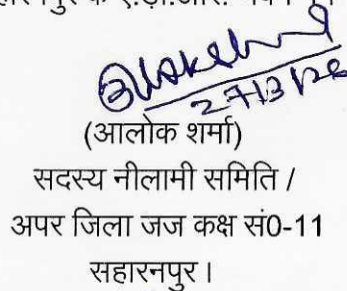 ए.डी.आर.
27/3/26
(आलोक शर्मा)
सदस्य नीलामी समिति /
अपर जिला जज कक्ष सं0-11
सहारनपुर।